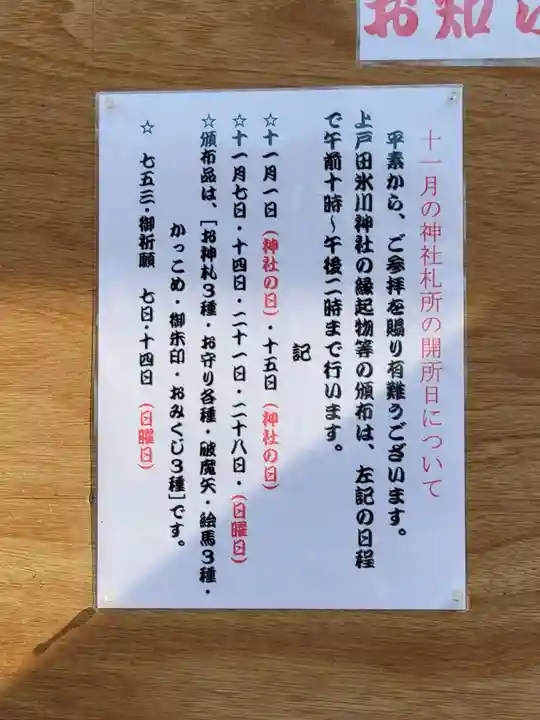 お知ら
十一月の神社札所の開所日について
平素から、ご参拝を賜り有難うございます。
上戸田氷川神社の縁起物等の頒布は、左記の日程
で午前十時～午後二時まで行います。
記
☆十一月一日（神社の日）・十五日（神社の日）
☆十一月七日・十四日・二十一日・二十八日・（日曜日）
☆頒布品は、［お神札３種・お守り各種・破魔矢・絵馬３種・
かっこめ・御朱印・おみくじ３種］です。
☆　七五三・御祈願　七日・十四日（日曜日）